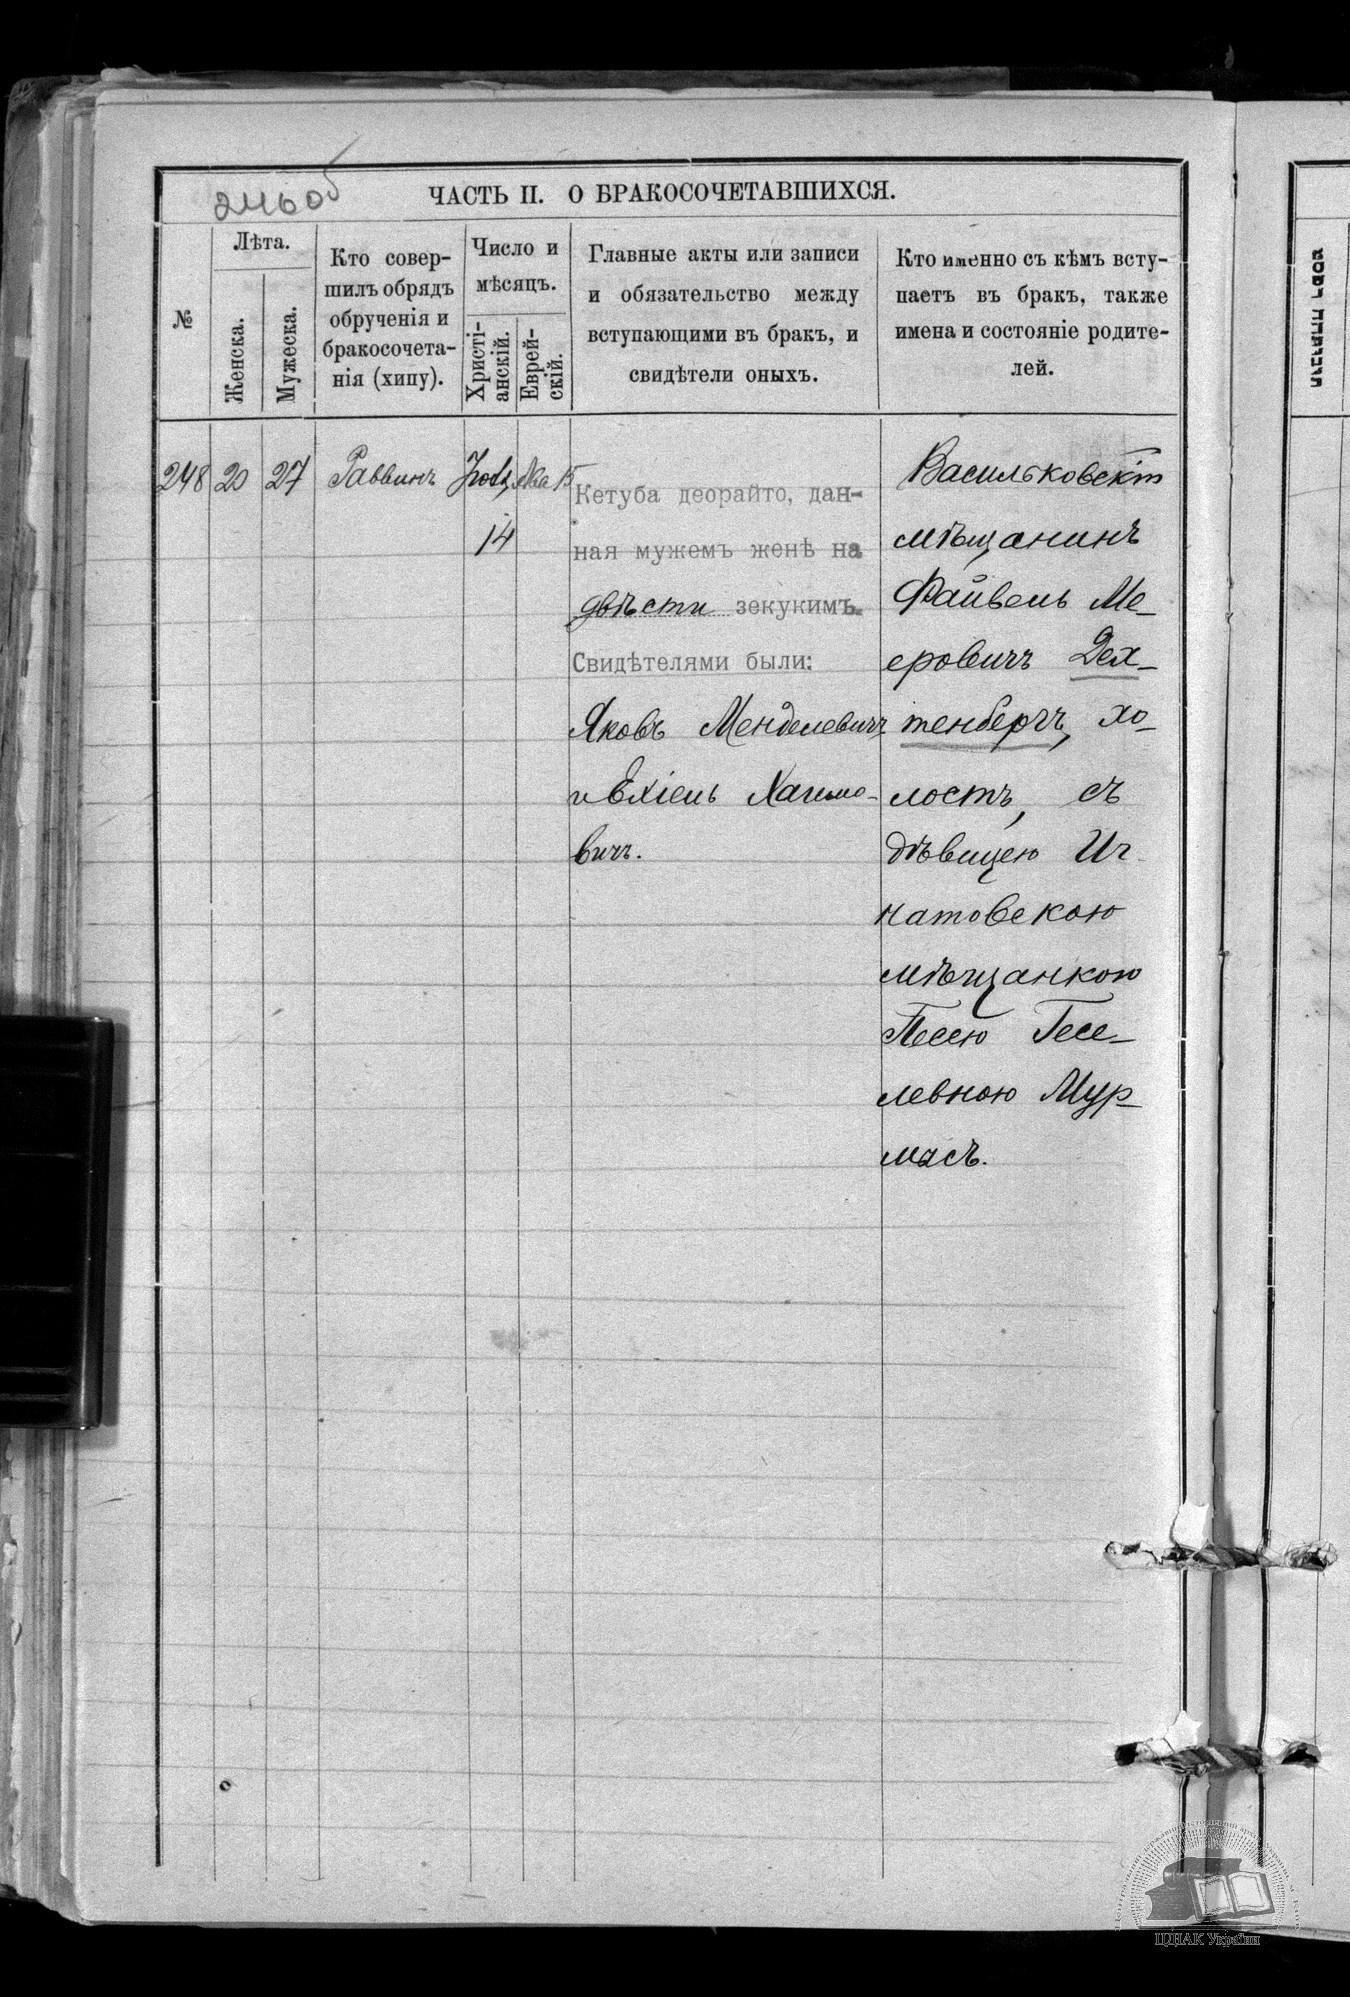 246 об
ЧАСТЬ II. О БРАКОСОЧЕТАВШИХСЯ.
№
Лѣта.
Женска.
Мужеска.
Кто совер-
шилъ обрядъ
обрученія и
бракосочета-
нія (хипу).
Число и
мѣсяцъ.
Христі-
анскій.
Еврей-
скій.
Главные акты или записи
и обязательство между
вступающими въ бракъ, и
свидѣтели оныхъ.
Кто именно съ кѣмъ всту-
паетъ въ бракъ, также
имена и состояніе родите-
лей.
248 20 27 Раввинъ 15
14
Кетуба деорайто, дан-
ная мужемъ женѣ на
двѣсти зекукимъ.
Свидѣтелями были:
Яковъ Менделевичъ
и Ехіель Хаимо-
вичъ.
Васильковскій
мѣщанинъ
Файвель Ме-
еровичъ Дех-
тенбергъ, хо-
лостъ, съ
дѣвицею Иг-
натовскою
мѣщанкою
Песею Гесе-
левною Мур-
масъ.
ЦДІАК України